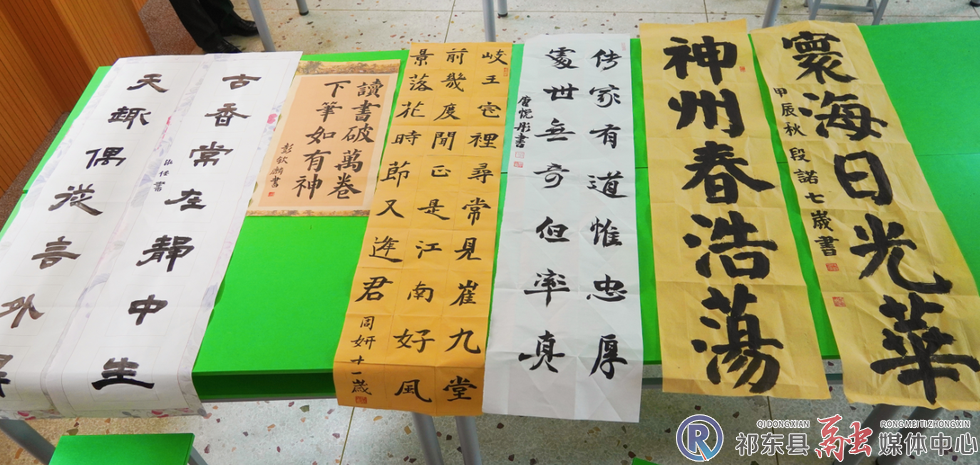 古香常在靜中生
天趣偶從言外
讀書破萬卷
下筆如有神
岐王宅裡尋常見崔九堂
前幾度聞正是江南好風
景落花時節又逢君
周妍十一歲
传家有道惟忠厚
處世无奇但率真
唐悦彤書
神州春浩蕩
寰海日光華
甲辰秋 段諾七歲書
QIDONGXIAN RONGMEITIZHONGXIN
祁东县融媒体中心